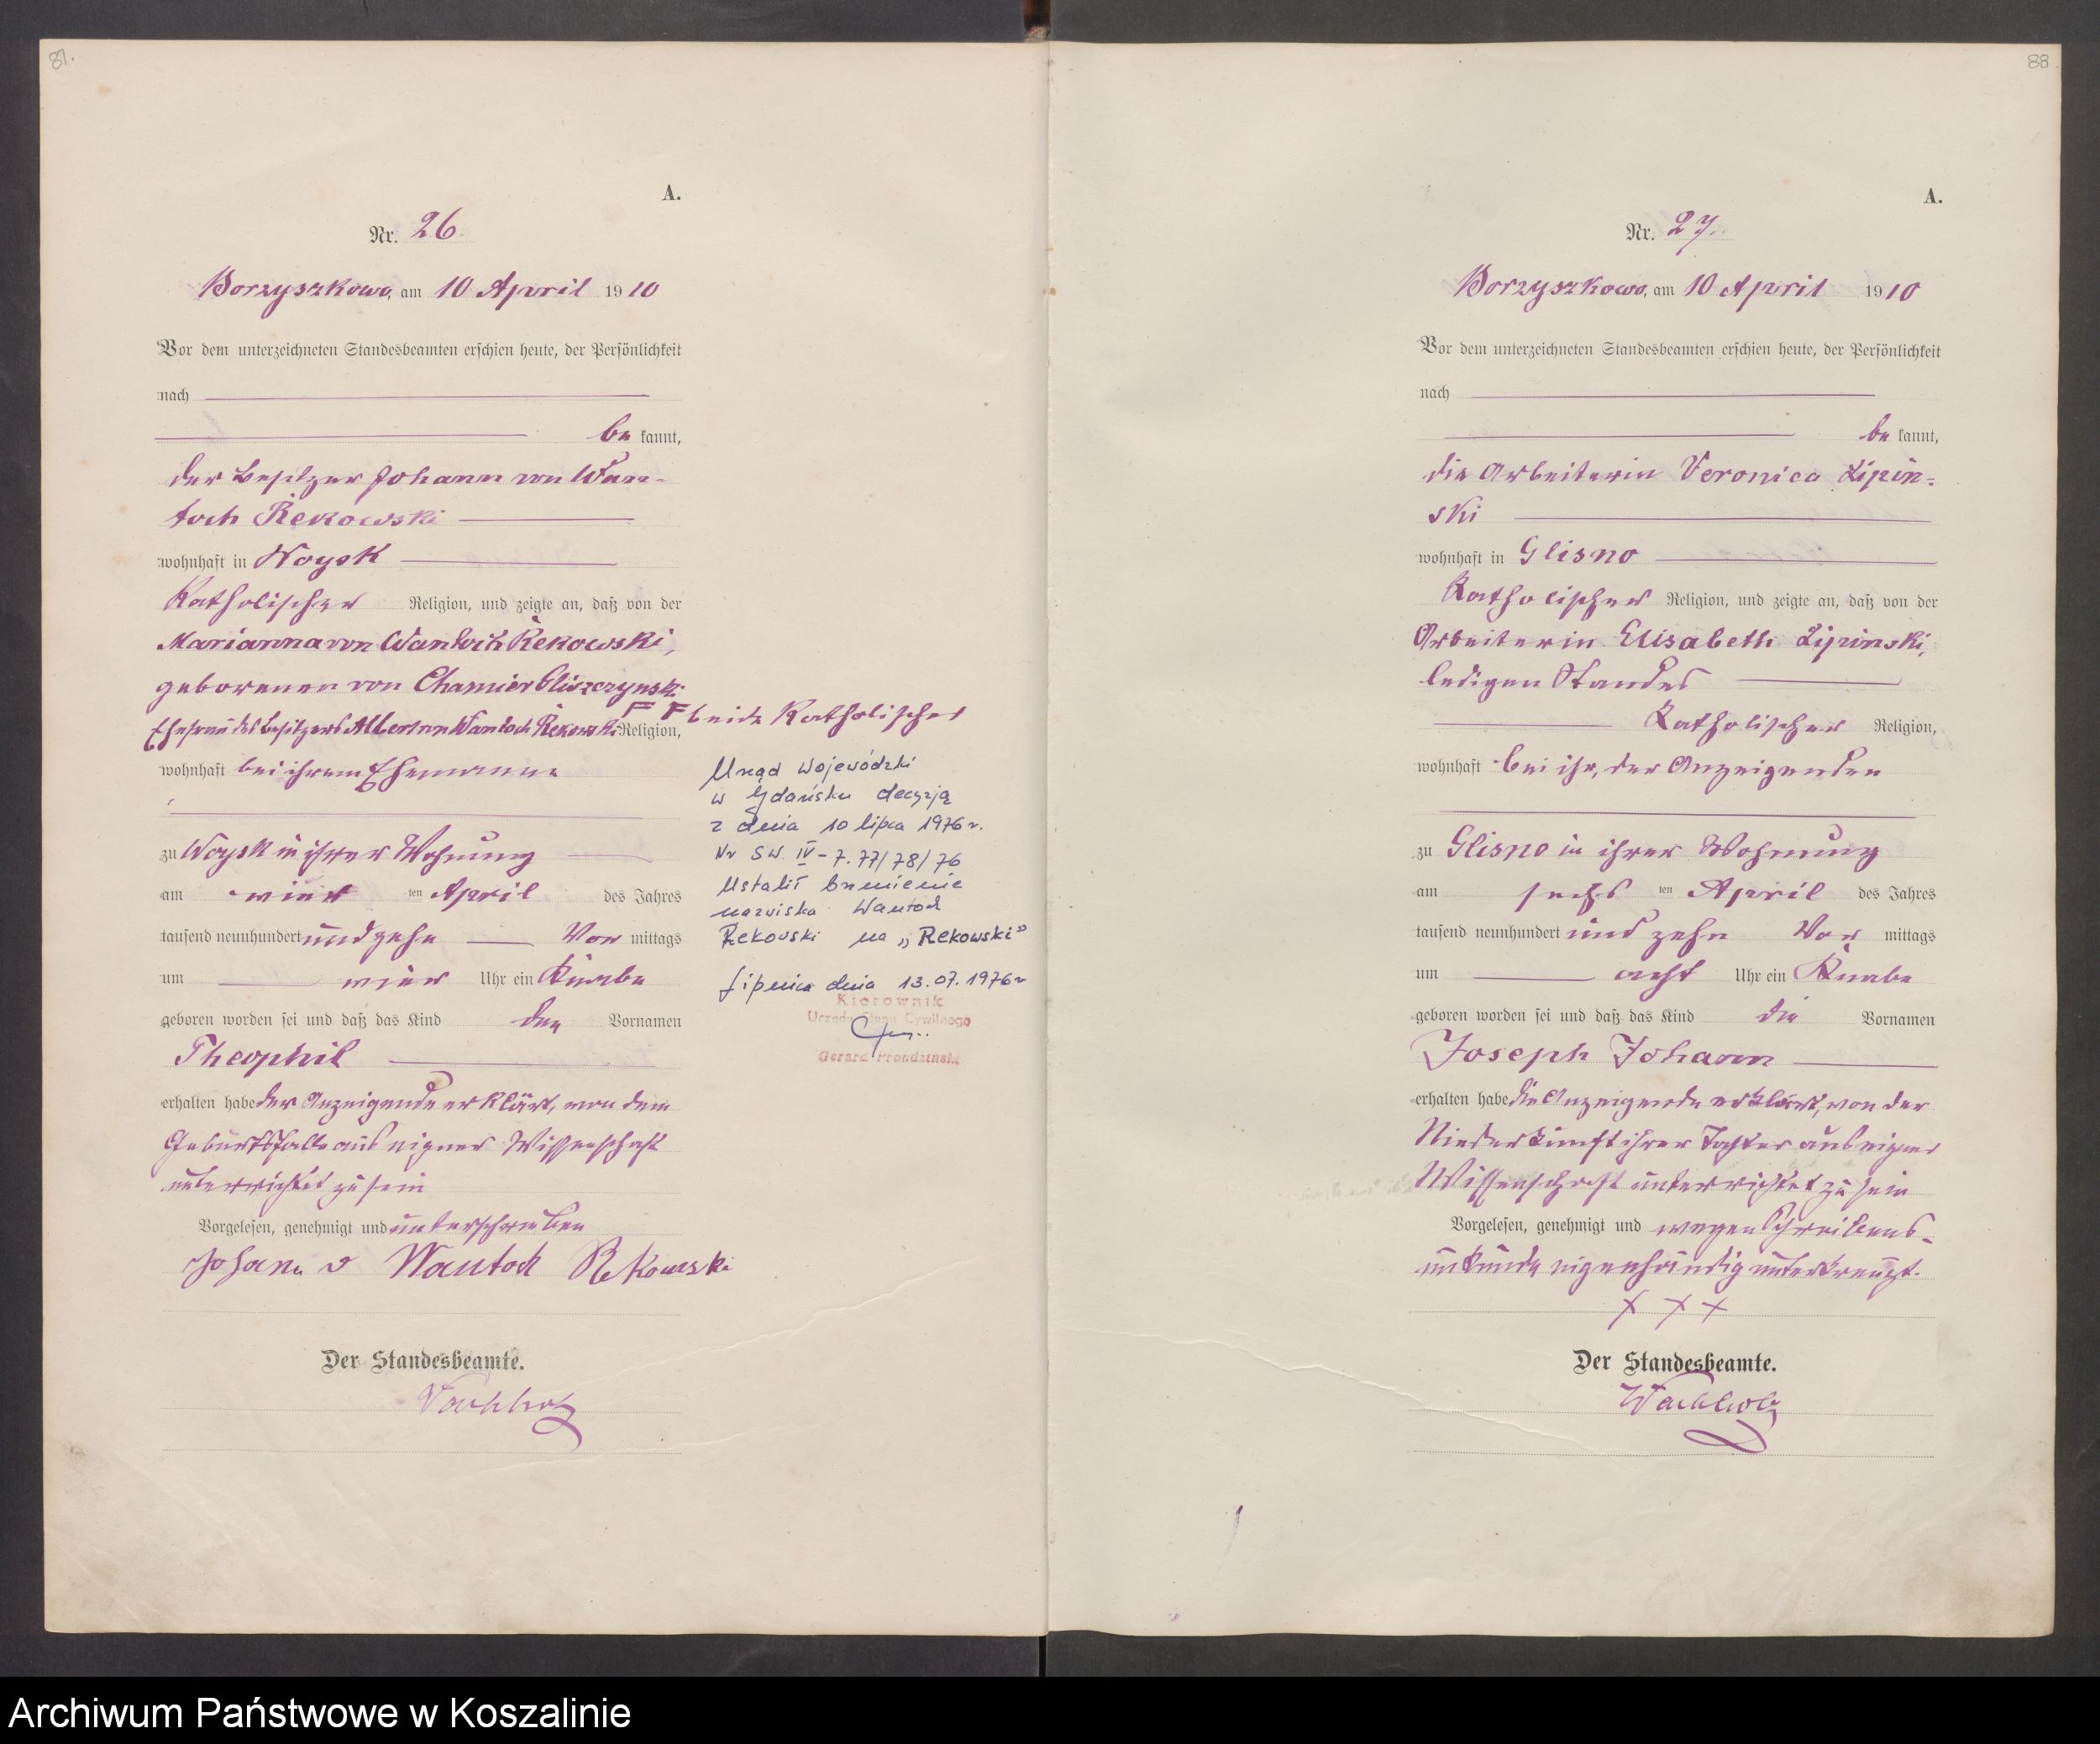 87.
A.
Nr. 26
Borzyszkowo, am 10 April 1910
Vor dem unterzeichneten Standesbeamten erschien heute, der Persönlichkeit
nach
be kannt,
der Besitzer Johann von Wan-
toch Rekowski
wohnhaft in Woysk
Katholischer Religion, und zeigte an, daß von der
Marianna von Wantoch Rekowski,
geborenen von Chamier Gliszczynski
Ehefrau des Besitzers Albert von Wantoch Rekowski Religion,
beide Katholischer
wohnhaft bei ihrem Ehemanne
zu Woysk in ihrer Wohnung
am vier ten April des Jahres
tausend neunhundert und zehn Vor mittags
um vier Uhr ein Knabe
geboren worden sei und daß das Kind den Vornamen
Theophil
erhalten habe der Anzeigende erklärt, von dem
Geburtsfalle aus eigener Wissenschaft
unterrichtet zu sein
Vorgelesen, genehmigt und unterschrieben
Johann v Wantoch Rekowski
Der Standesbeamte.
Wachholz
Urząd Wojewódzki
w Gdańsku decyzją
z dnia 10 lipca 1976 r.
Nr SW. IV-7.77/78/76
Ustalił brzmienie
nazwiska Wantoch
Rekowski na „Rekowski"
Lipnica dnia 13.07.1976 r
Kierownik
Urzędu Stanu Cywilnego
Gerard Prondzinski
88
A.
Nr. 27.
Borzyszkowo, am 10 April 1910
Vor dem unterzeichneten Standesbeamten erschien heute, der Persönlichkeit
nach
be kannt,
die Arbeiterin Veronica Lipin-
ski
wohnhaft in Glisno
Katholischer Religion, und zeigte an, daß von der
Arbeiterin Elisabeth Lipinski,
ledigen Standes
Katholischer Religion,
wohnhaft bei ihr, der Anzeigenden
zu Glisno in ihrer Wohnung
am sechs ten April des Jahres
tausend neunhundert und zehn Vor mittags
um acht Uhr ein Knabe
geboren worden sei und daß das Kind die Vornamen
Joseph Johann
erhalten habe die Anzeigende erklärt, von der
Niederkunft ihrer Tochter aus eigner
Wissenschaft unterrichtet zu sein
Vorgelesen, genehmigt und wegen Schreibens-
unkunde eigenhändig unterkreuzt.
x x x
Der Standesbeamte.
Wachholz
Archiwum Państwowe w Koszalinie